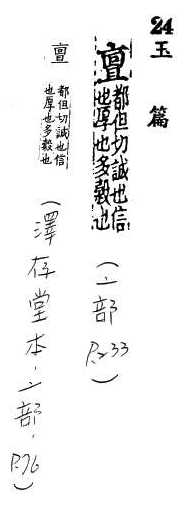 24
玉篇
亶 都但切誠也信
也厚也多穀也
(亠部 P.233)
亶 都但切誠也信
也厚也多穀也
(澤存堂本.亠部.P.76)